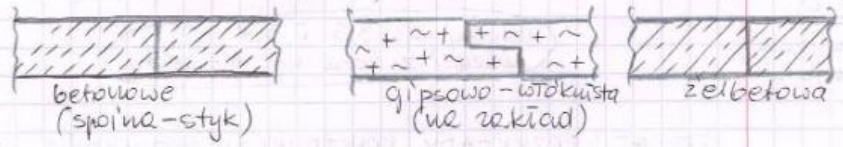 betonowe
(spoina-styk)
gipsowo-włóknista
(na zakład)
żelbetowa